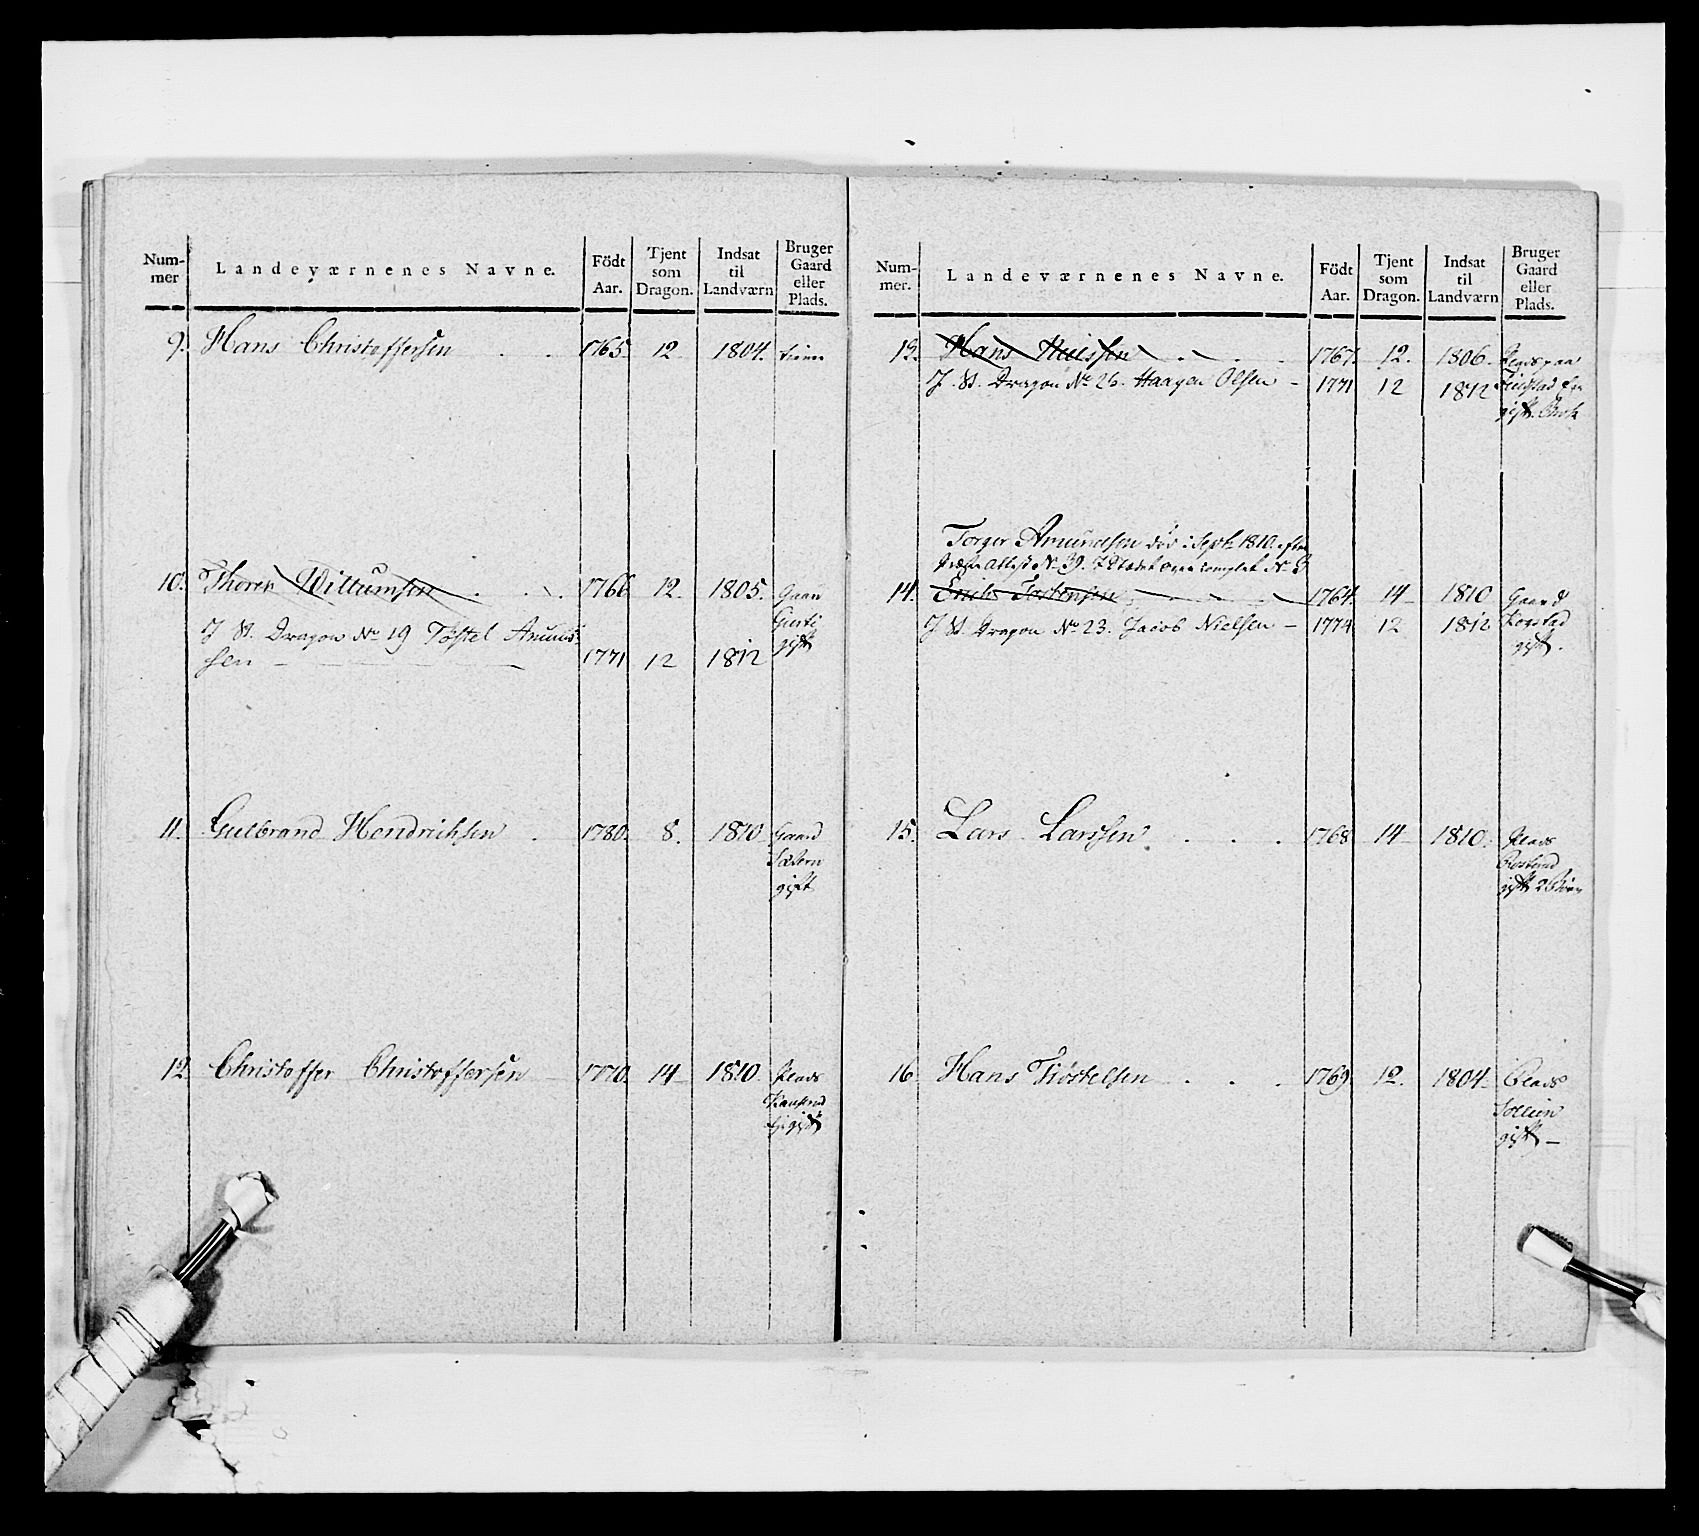 Num-
mer
Landeværnenes Navne.
Födt
Aar.
Tjent
som
Dragon.
Indsat
til
Landværn
Bruger
Gaard
eller
Plads.
9. Hans Christoffersen 1765 12 1804.
10. Thorer Willumsen 1766 12. 1805. Gaard
J St. Dragon No 19 Töstel Amund-
sen 1771 12 1812
gift
11. Gulbrand Hendrichsen 1780. 8. 1810 Gaard
gift
12 Christoffer Christoffersen 1770. 14 1810 Plads
Num-
mer.
Landeværnenes Navne.
Födt
Aar.
Tjent
som
Dragon.
Indsat
til
Landværn
Bruger
Gaard
eller
Plads.
13. Hans 1767. 12. 1806.
J St. Dragon No 26. Haagen Olsen 1771 12 1812
gift
Torger Amundsen död i Septr 1810. efter
Attest No 39. J Stedet over complet No 3
14. 1764. 14 1810 Gaard
J St Dragon No 23. Jacob Nielsen 1774 12 1812
gift.
15. Lars Larssen 1768 14 1810. Plads
gift 2 Börn
16 Hans Tiöstelsen 1769 12. 1804. Plads
gift